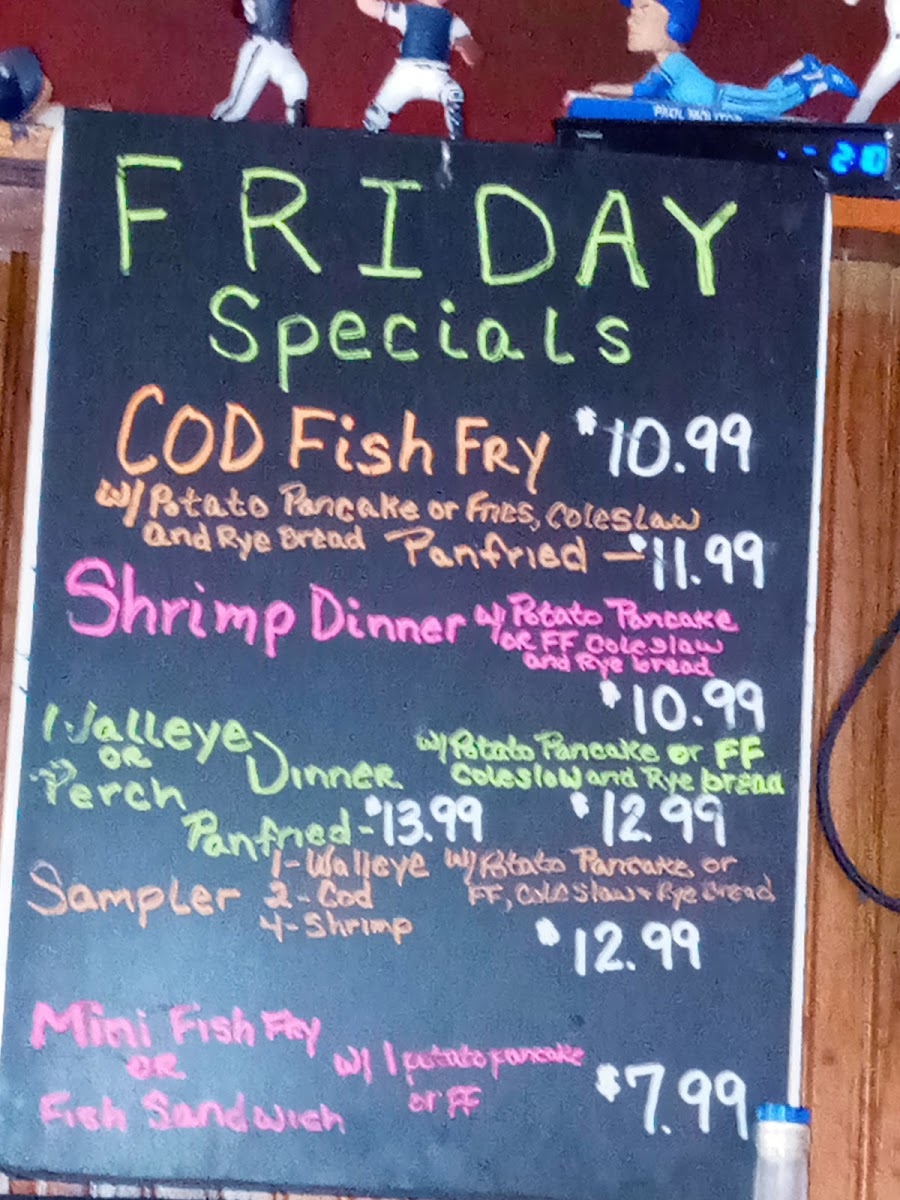 PAUL MOLITOR
20
FRIDAY
Specials
COD Fish FRY $10.99
w/ Potato Pancake or Fries, Coleslaw
and Rye Bread Panfried - $11.99
Shrimp Dinner w/ Potato Pancake
or FF Coleslaw
and Rye bread
$10.99
Walleye
OR
Perch Dinner w/ Potato Pancake or FF
Coleslaw and Rye bread
Panfried - $13.99 $12.99
Sampler 1 - Walleye w/ Potato Pancake or
2 - Cod FF, Cole Slaw + Rye Bread
4 - Shrimp
$12.99
Mini Fish Fry
OR w/ 1 potato pancake
Fish Sandwich or FF $7.99